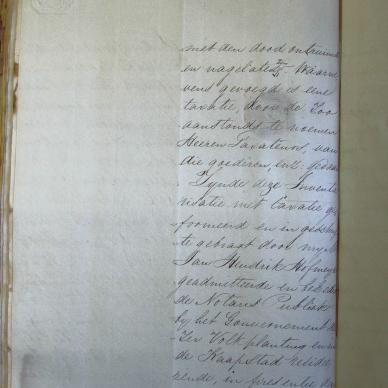 met den dood ontruimd
en nagelaten. Waarne
vens gevoegd is eene
taxatie, door de Zoo
aanstonds te noemen
Heeren Taxateurs, van
die goederen,
Zynde deze Inventa
risatie met Taxatie ge
formeerd en in geschrif
te gebragt door my
Jan Hendrik Hofmeyr
geadmitteerde en
de Notaris Publiek
by het Gouvernement de
zer Volkplanting en in
de Kaapstad reside
rende, in presentie